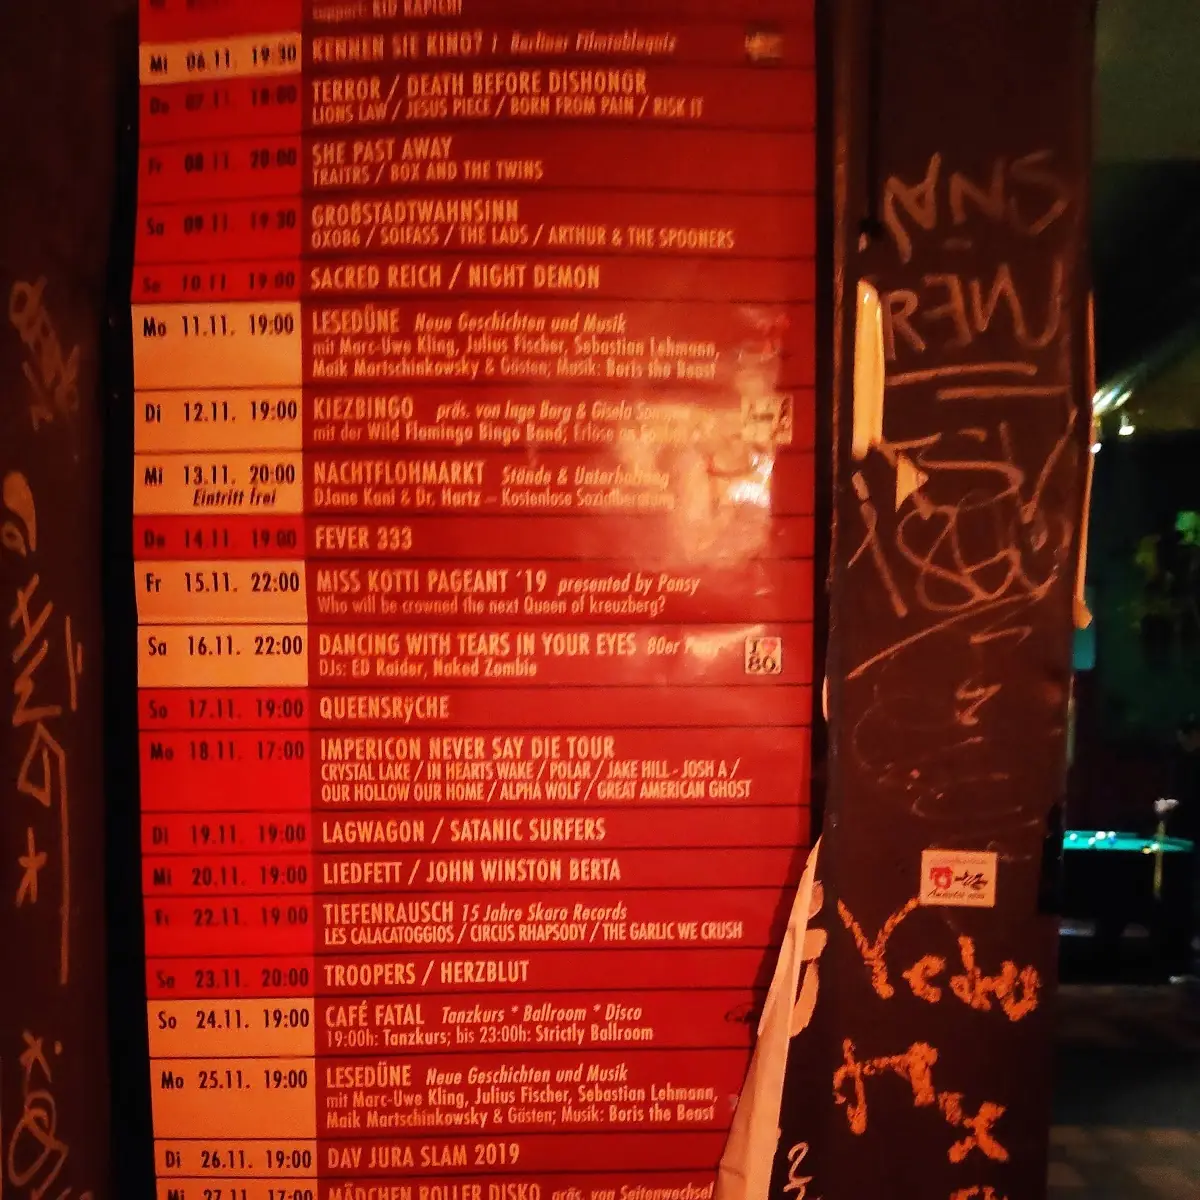 support: KID KAPICHI
Mi 06.11. 19:30 KENNEN SIE KINO? Berliner Filmtablequiz
Do 07.11. 18:00 TERROR / DEATH BEFORE DISHONOR
LIONS LAW / JESUS PIECE / BORN FROM PAIN / RISK IT
Fr 08.11. 20:00 SHE PAST AWAY
TRAITRS / BOX AND THE TWINS
Sa 09.11. 19:30 GROßSTADTWAHNSINN
OXO86 / SOIFASS / THE LADS / ARTHUR & THE SPOONERS
So 10.11. 19:00 SACRED REICH / NIGHT DEMON
Mo 11.11. 19:00 LESEDÜNE Neue Geschichten und Musik
mit Marc-Uwe Kling, Julius Fischer, Sebastian Lehmann,
Maik Martschinkowsky & Gästen; Musik: Boris the Beast
Di 12.11. 19:00 KIEZBINGO präs. von Inge Borg & Gisela
mit der Wild Flamingo Bingo Band; Erlöse an
Mi 13.11. 20:00 NACHTFLOHMARKT Stände & Unterhaltung
Eintritt frei DJane Kani & Dr. Hartz – Kostenlose Sozialberatung
Do 14.11. 19:00 FEVER 333
Fr 15.11. 22:00 MISS KOTTI PAGEANT '19 presented by Pansy
Who will be crowned the next Queen of kreuzberg?
Sa 16.11. 22:00 DANCING WITH TEARS IN YOUR EYES 80er Party
DJs: ED Raider, Naked Zombie
I 80.
So 17.11. 19:00 QUEENSRŸCHE
Mo 18.11. 17:00 IMPERICON NEVER SAY DIE TOUR
CRYSTAL LAKE / IN HEARTS WAKE / POLAR / JAKE HILL - JOSH A /
OUR HOLLOW OUR HOME / ALPHA WOLF / GREAT AMERICAN GHOST
Di 19.11. 19:00 LAGWAGON / SATANIC SURFERS
Mi 20.11. 19:00 LIEDFETT / JOHN WINSTON BERTA
Fr 22.11. 19:00 TIEFENRAUSCH 15 Jahre Skaro Records
LES CALACATOGGIOS / CIRCUS RHAPSODY / THE GARLIC WE CRUSH
Sa 23.11. 20:00 TROOPERS / HERZBLUT
So 24.11. 19:00 CAFÉ FATAL Tanzkurs * Ballroom * Disco
19:00h: Tanzkurs; bis 23:00h: Strictly Ballroom
Mo 25.11. 19:00 LESEDÜNE Neue Geschichten und Musik
mit Marc-Uwe Kling, Julius Fischer, Sebastian Lehmann,
Maik Martschinkowsky & Gästen; Musik: Boris the Beast
Di 26.11. 19:00 DAV JURA SLAM 2019
Mi 27.11. 17:00 MÄDCHEN ROLLER DISKO präs. von Seitenwechsel